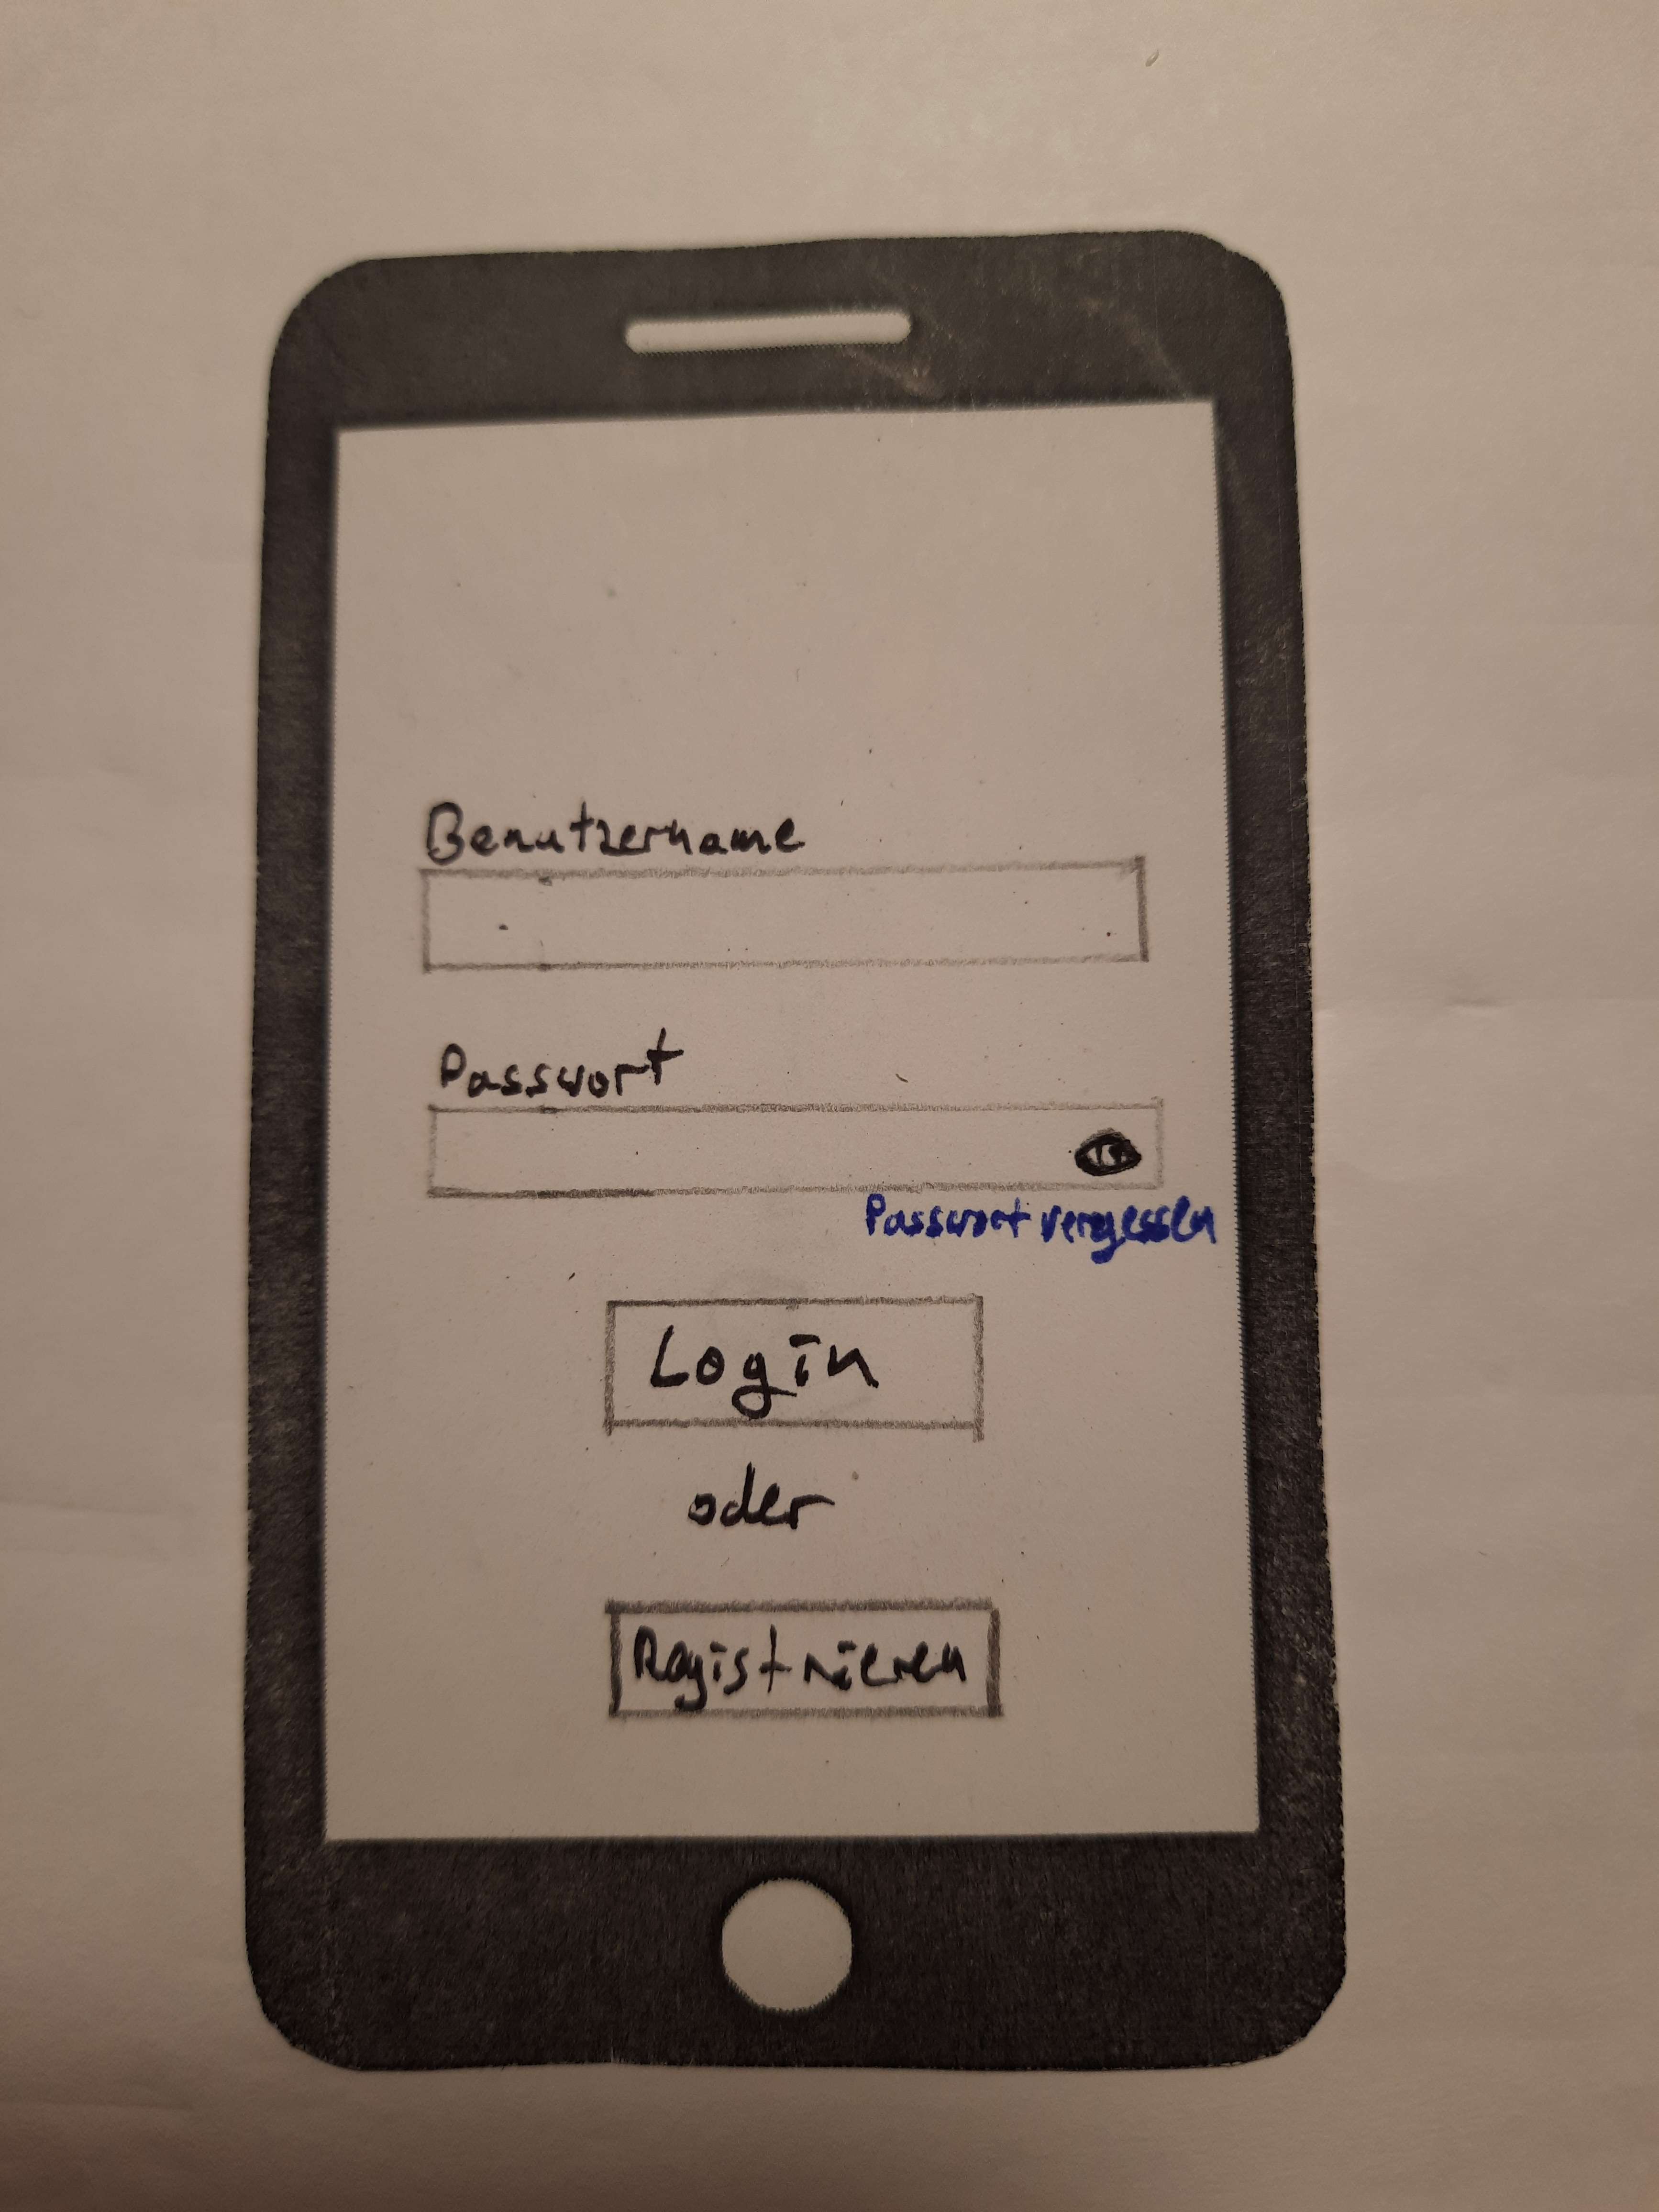 Benutzername
Passwort
Passwort vergessen
Login
oder
Registrieren